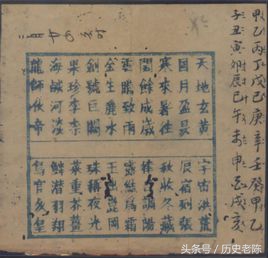 甲乙丙丁戊己庚辛壬癸甲乙
子丑寅卯辰巳午未申酉戌亥
天地玄黃 宇宙洪荒
日月盈昃 辰宿列張
寒來暑往 秋收冬藏
閏餘成歲 律呂調陽
雲騰致雨 露結爲霜
金生麗水 玉出崑岡
劍號巨闕 珠稱夜光
果珍李柰 菜重芥薑
海鹹河淡 鱗潛羽翔
龍師火帝 鳥官人皇
头条号 / 历史老陈